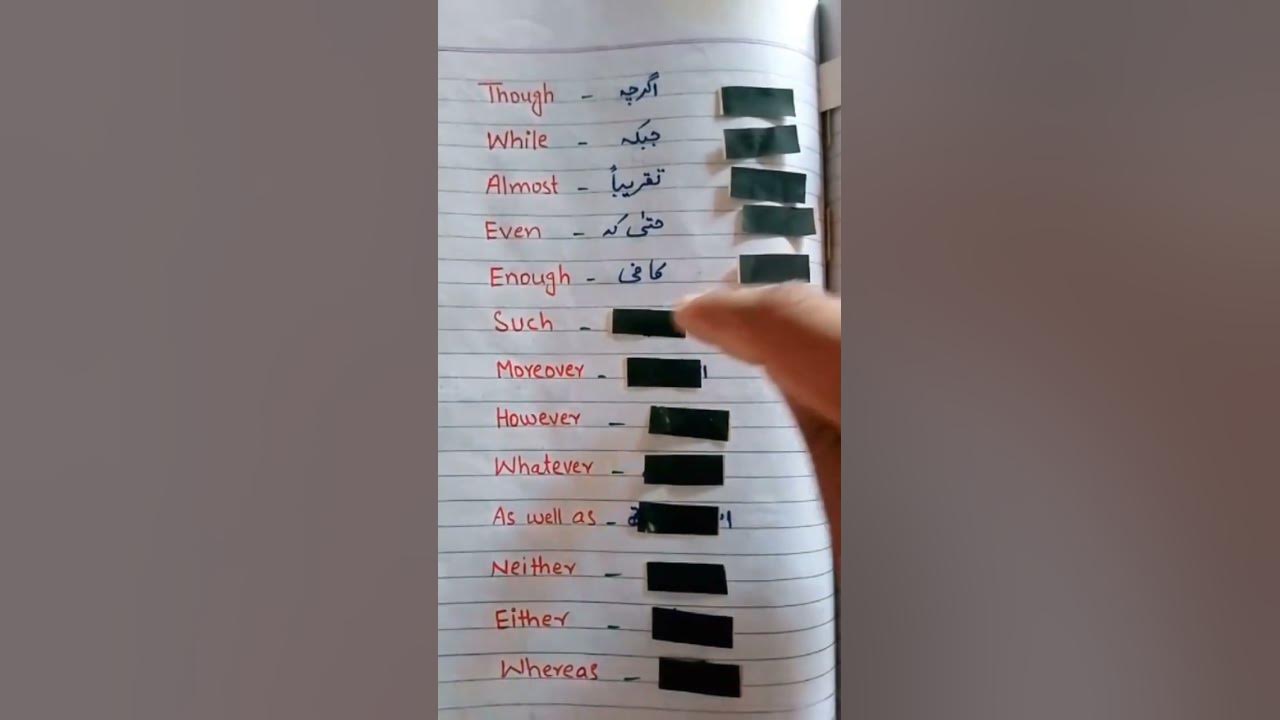 Though - اگرچہ
While - جبکہ
Almost - تقریباً
Even - حتٰی کہ
Enough - کافی
Such -
Moreover -
However -
Whatever -
As well as -
Neither -
Either -
Whereas -